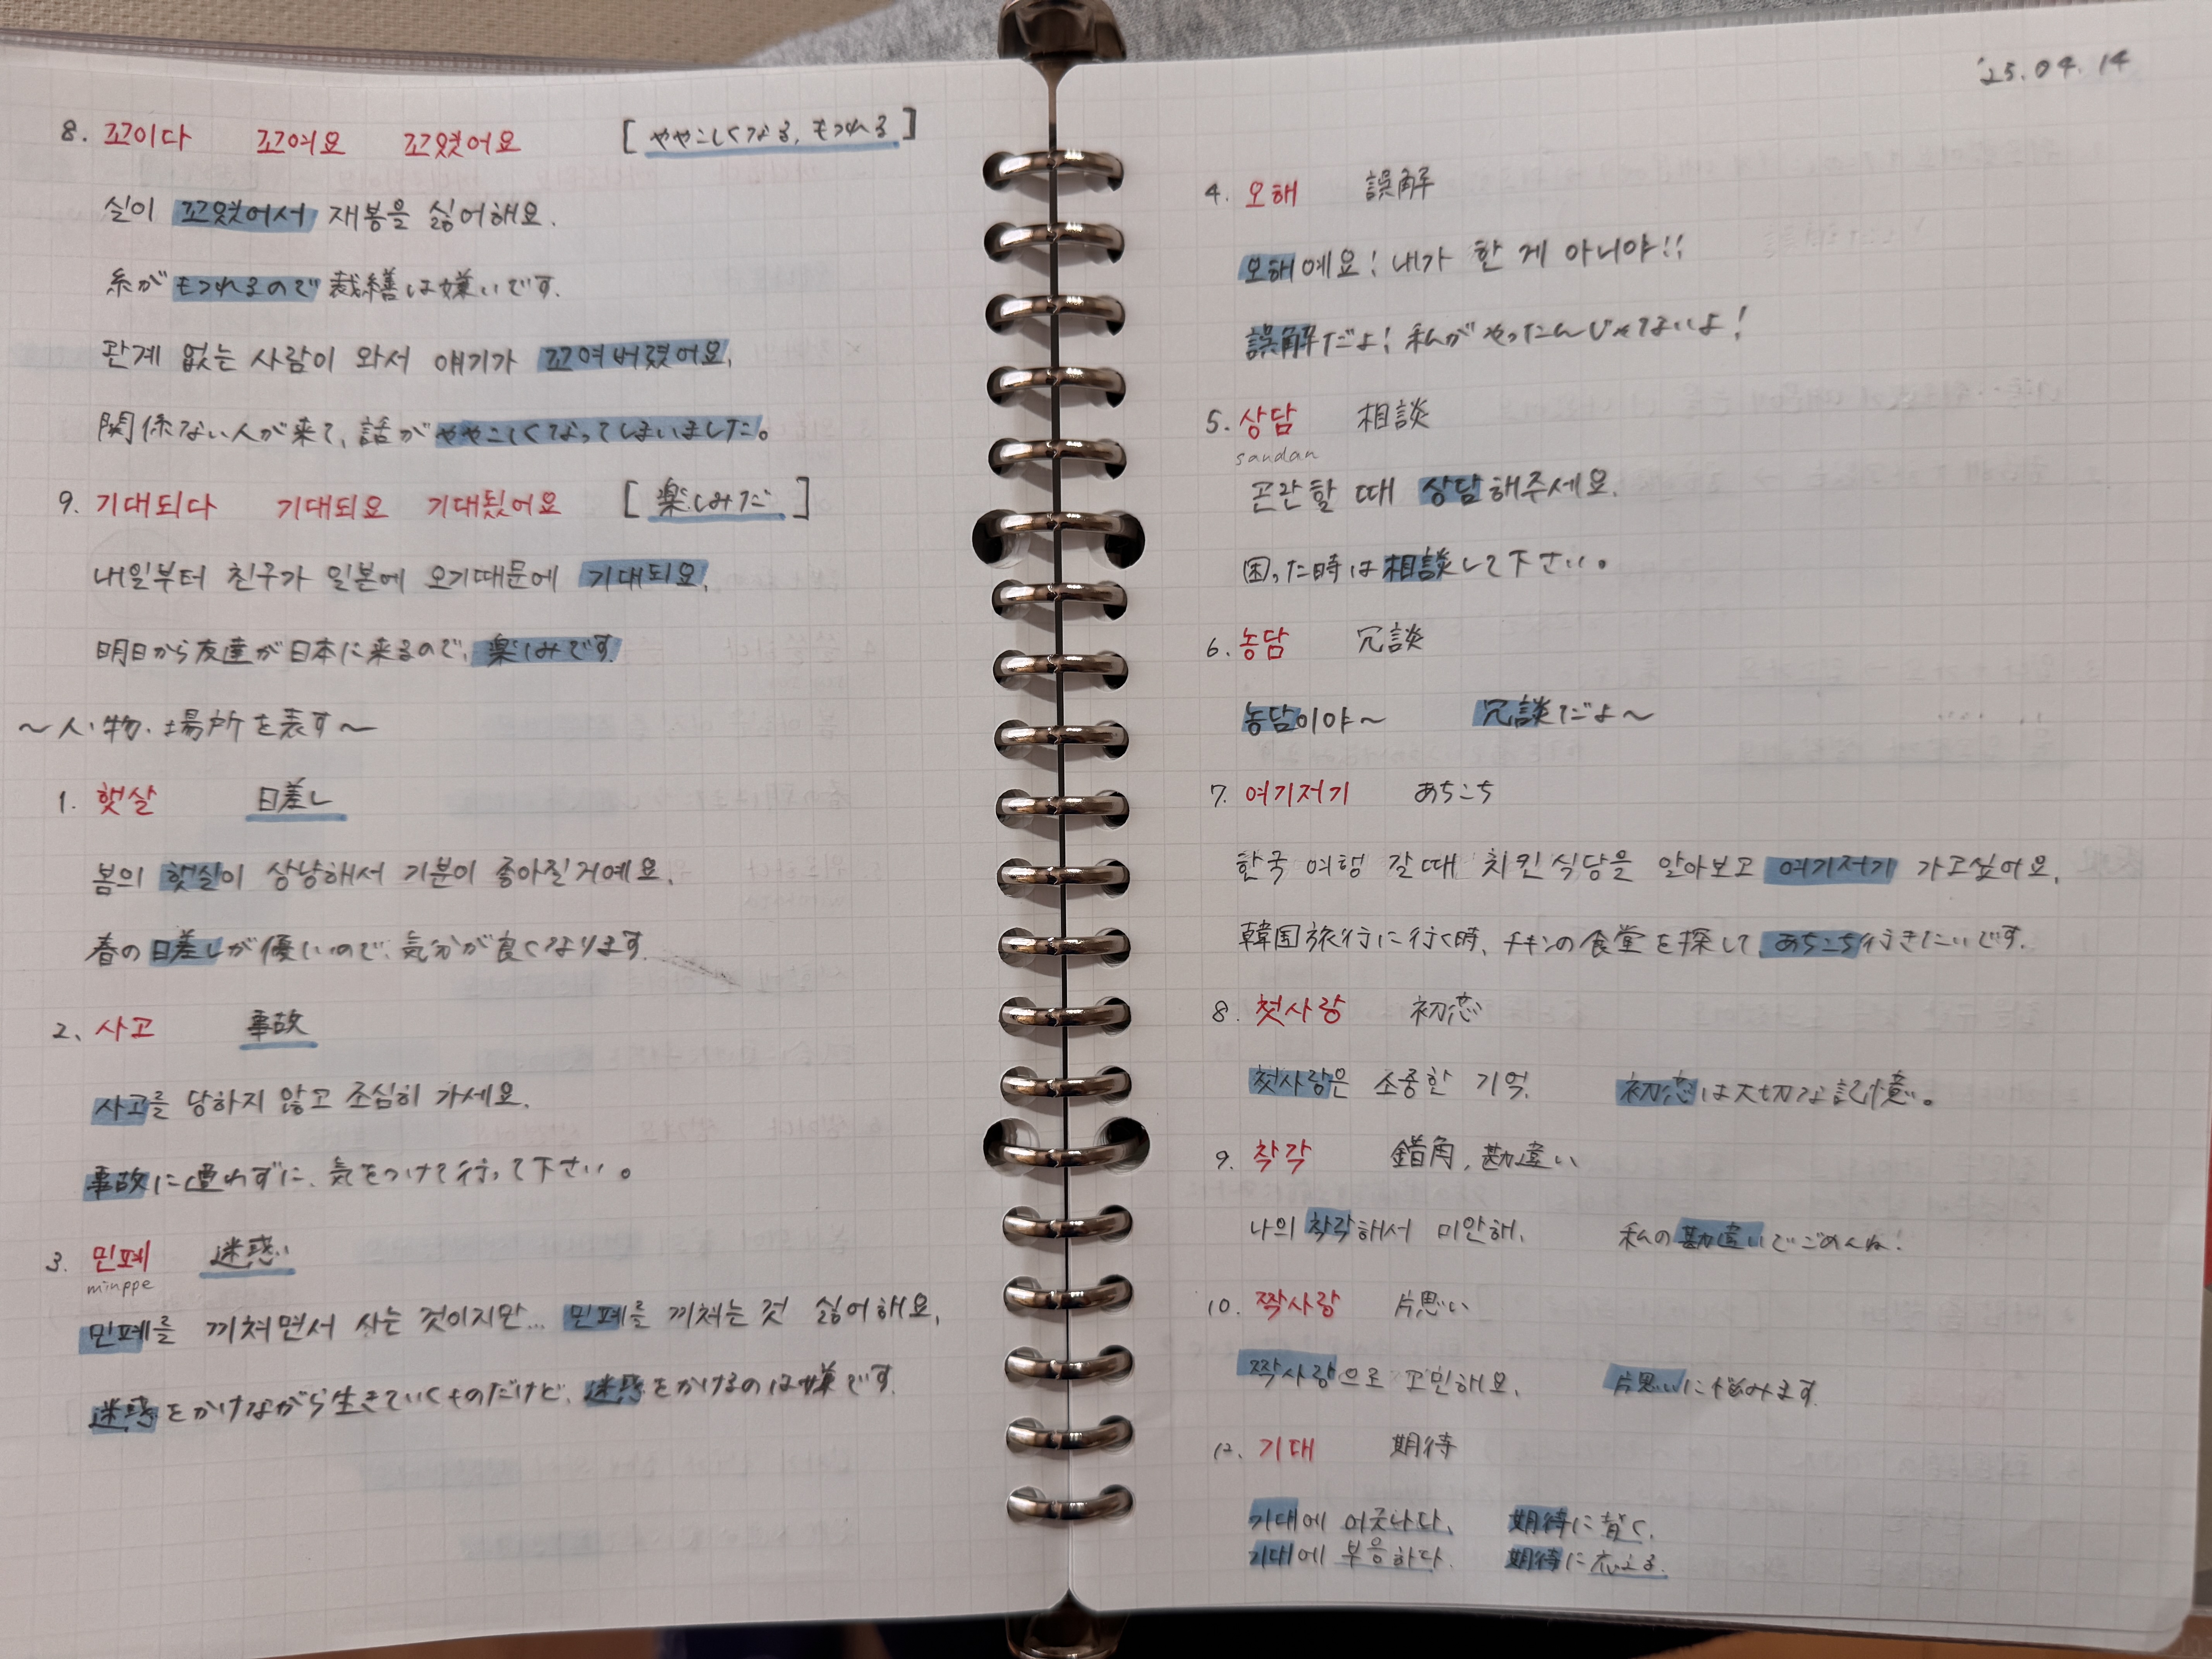 8. 꼬이다 꼬여요 꼬였어요 [ややこしくなる, もつれる]
실이 꼬였어서 재봉을 싫어해요.
糸がもつれるので裁縫は嫌いです.
관계 없는 사람이 와서 얘기가 꼬여버렸어요.
関係ない人が来て、話がややこしくなってしまいました。
9. 기대되다 기대되요 기대됬어요 [楽しみだ]
내일부터 친구가 일본에 오기때문에 기대되요.
明日から友達が日本に来るので、楽しみです.
〜人・物・場所を表す〜
1. 햇살 日差し
봄의 햇살이 상냥해서 기분이 좋아질거예요.
春の日差しが優しいので、気分が良くなります.
2. 사고 事故
사고를 당하지 않고 조심히 가세요.
事故に遭わずに、気をつけて行って下さい。
3. 민폐 迷惑
minppe
민폐를 끼쳐면서 사는 것이지만... 민폐를 끼쳐는 것 싫어해요.
迷惑をかけながら生きていくものだけど、迷惑をかけるのは嫌です.
'25.04.14
4. 오해 誤解
오해예요! 내가 한 게 아니야!!
誤解だよ! 私がやったんじゃないよ!
5. 상담 相談
sandan
곤란할 때 상담해주세요.
困った時は相談して下さい。
6. 농담 冗談
농담이야〜 冗談だよ〜
7. 여기저기 あちこち
한국 여행 갈때 치킨식당을 알아보고 여기저기 가고싶어요.
韓国旅行に行く時、チキンの食堂を探して、あちこち行きたいです.
8. 첫사랑 初恋
첫사랑은 소중한 기억. 初恋は大切な記憶。
9. 착각 錯角, 勘違い
나의 착각해서 미안해. 私の勘違いでごめんね!
10. 짝사랑 片思い
짝사랑으로 고민해요. 片思いに悩みます
12. 기대 期待
기대에 어긋나다. 期待に背く.
기대에 부응하다. 期待に応える.